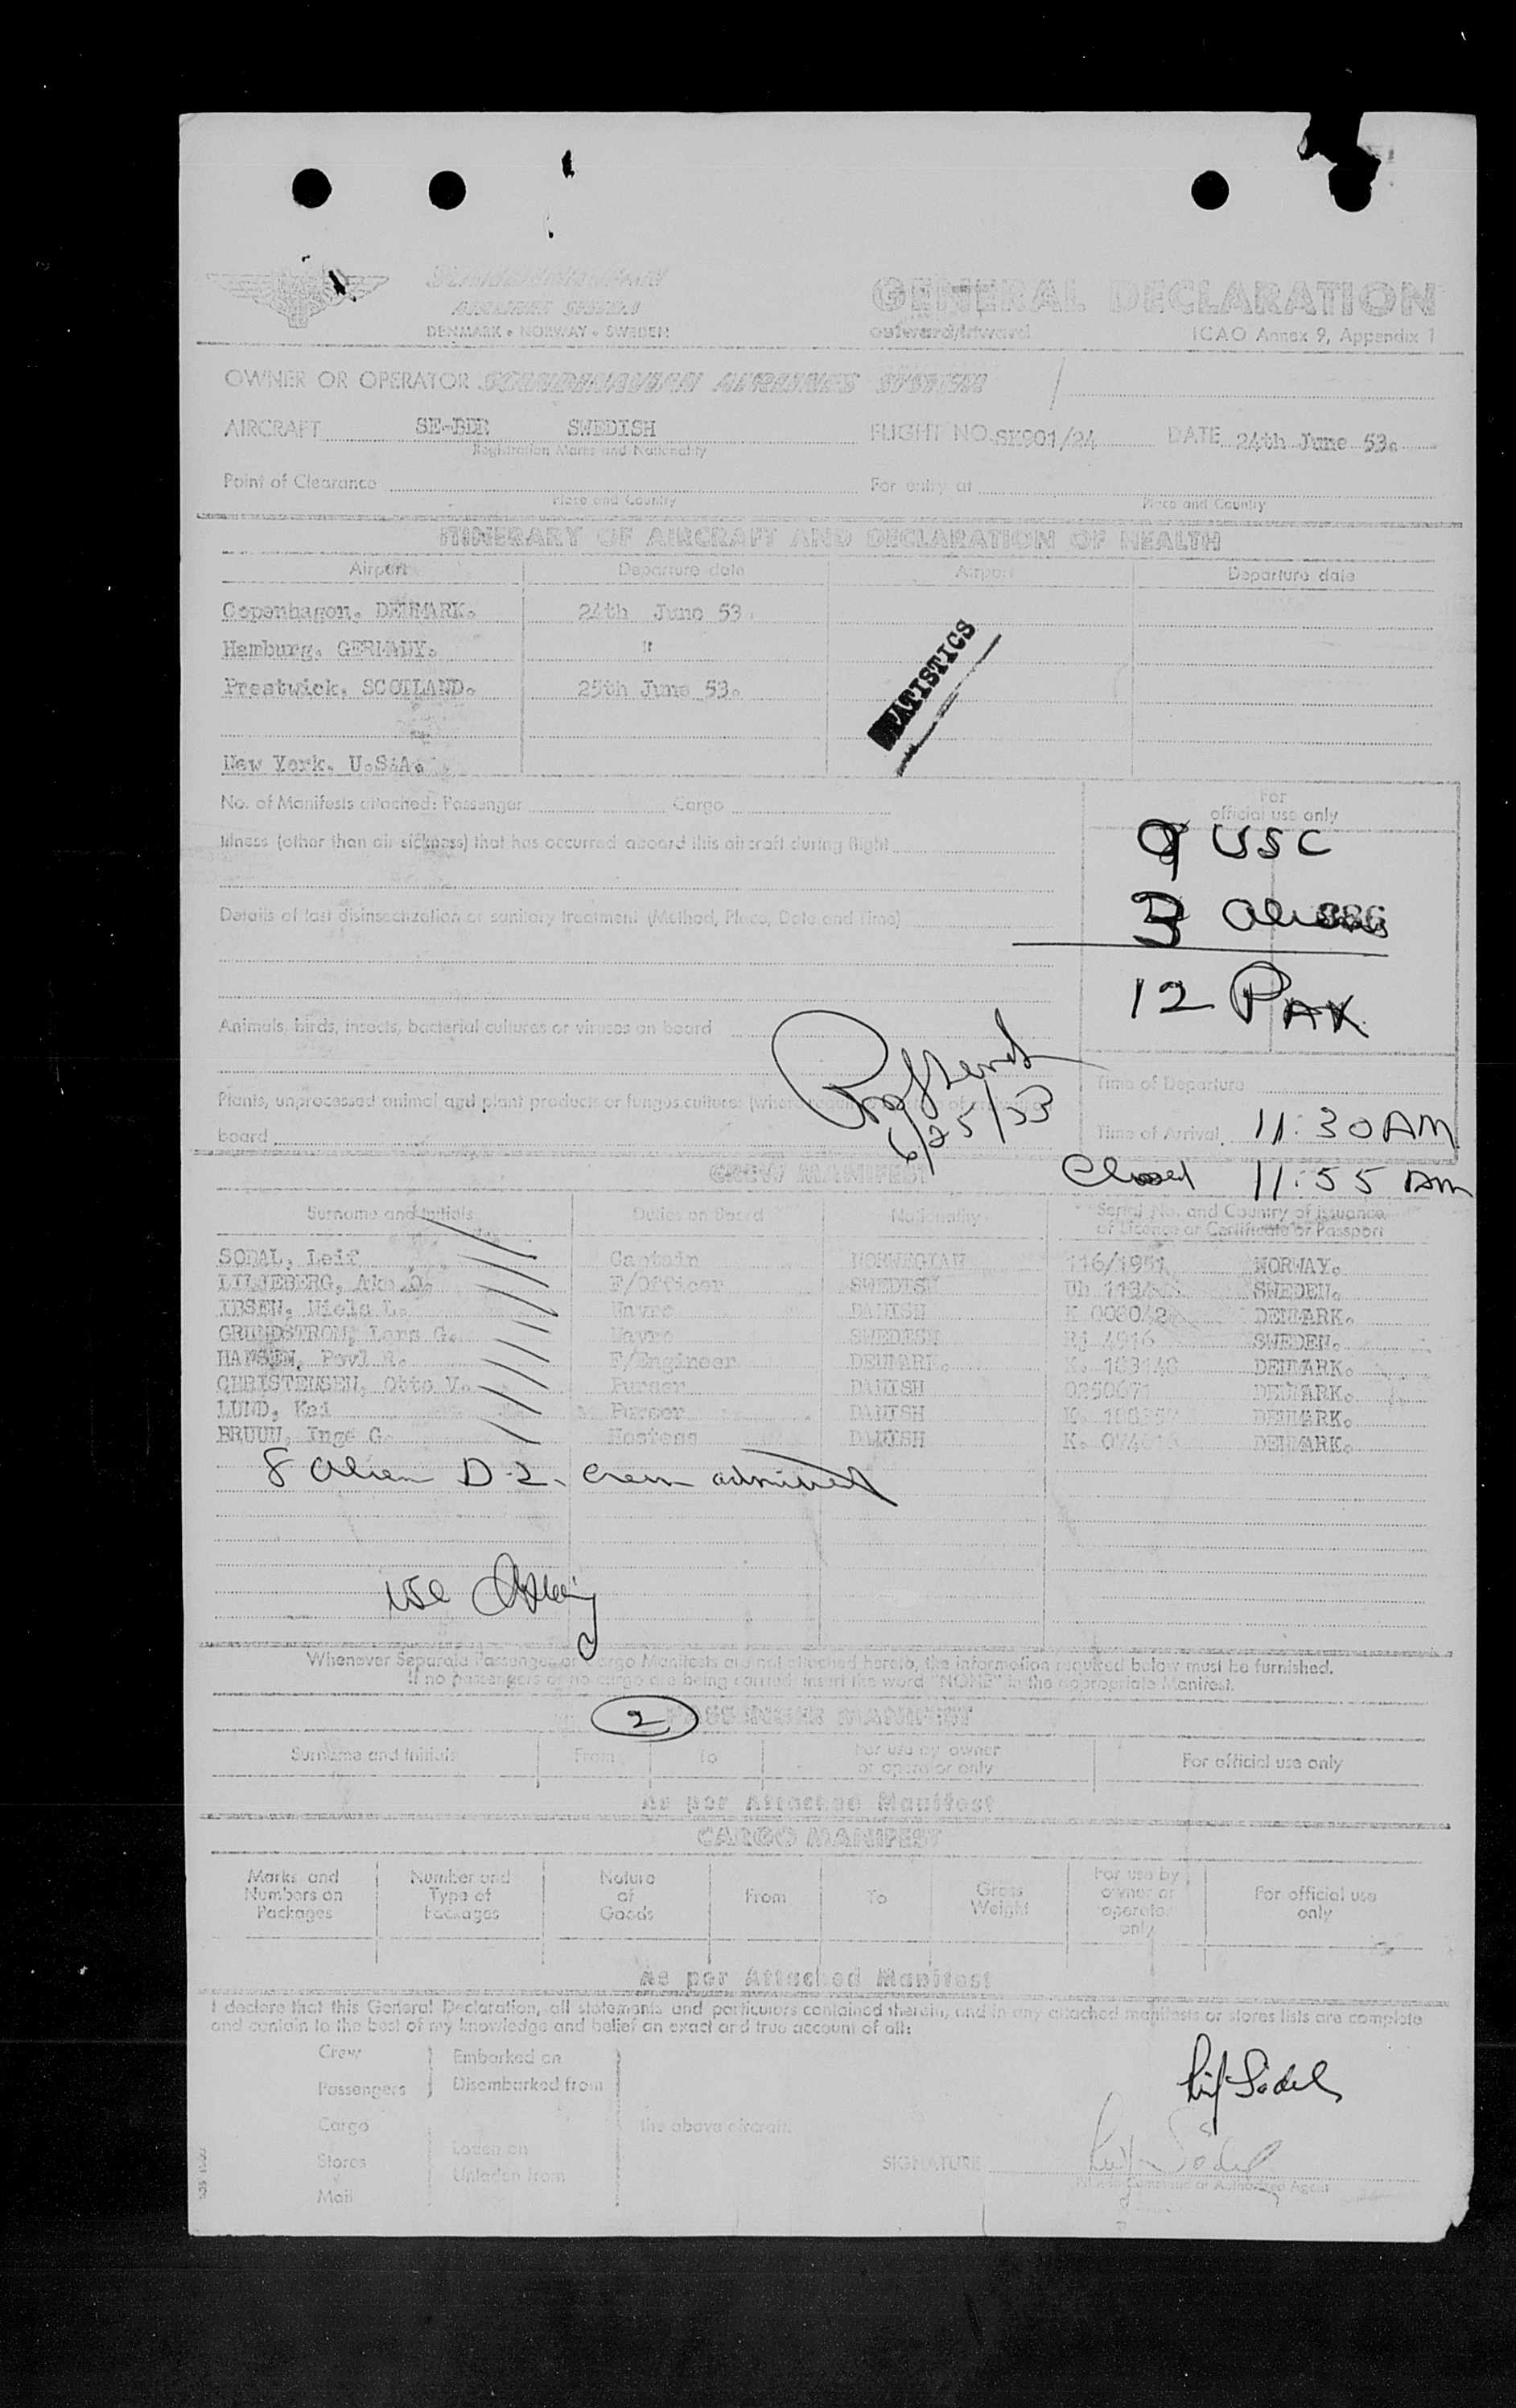 Scandinavian
AIRLINES SYSTEM
DENMARK • NORWAY • SWEDEN
GENERAL DECLARATION
outward/inward
ICAO Annex 9, Appendix 1
OWNER OR OPERATOR SCANDINAVIAN AIRLINES SYSTEM
AIRCRAFT SE-BDR SWEDISH FLIGHT NO. SK901/24 DATE 24th June 53.
Registration Marks and Nationality
Point of Clearance For entry at
Place and Country Place and Country
ITINERARY OF AIRCRAFT AND DECLARATION OF HEALTH
Airport Departure date Airport Departure date
Copenhagen, DENMARK. 24th June 53.
Hamburg, GERMANY. "
Prestwick, SCOTLAND. 25th June 53.
New York, U.S.A.
STATISTICS
No. of Manifests attached: Passenger Cargo
For
official use only
Illness (other than air sickness) that has occurred aboard this aircraft during flight
9 USC
Details of last disinsectization or sanitary treatment (Method, Place, Date and Time)
3 Aliens
12 PAX
Animals, birds, insects, bacterial cultures or viruses on board
6/25/53
Time of Departure
Plants, unprocessed animal and plant products or fungus cultures (where
board
Time of Arrival 11:30 AM
Closed 11:55 AM
CREW MANIFEST
Surname and Initials Duties on Board Nationality Serial No. and Country of Issuance
of Licence or Certificate or Passport
SODAL, Leif Captain NORWEGIAN 116/1951 NORWAY.
LILJEBERG, Ake O. F/Officer SWEDISH SWEDEN.
IBSEN, Niels L. Navro DANISH DENMARK.
GRUNDSTROM, Lars G. Navro SWEDISH Rj 4916 SWEDEN.
HANSEN, Povl H. F/Engineer DENMARK. K. 103140 DENMARK.
CHRISTENSEN, Otto V. Purser DANISH 0250671 DENMARK.
LUND, Kai Purser DANISH DENMARK.
BRUUN, Inge G. Hostess DANISH DENMARK.
8 Alien D-2. Crew admitted
Whenever Separate Passenger or Cargo Manifests are not attached hereto, the information required below must be furnished.
If no passengers or no cargo are being carried insert the word "NONE" in the appropriate Manifest.
2
PASSENGER MANIFEST
Surname and Initials From To For use by owner
or operator only For official use only
As per Attached Manifest
CARGO MANIFEST
Marks and
Numbers on
Packages Number and
Type of
Packages Nature
of
Goods From To Gross
Weight For use by
owner or
operator
only For official use
only
As per Attached Manifest
I declare that this General Declaration, all statements and particulars contained therein, and in any attached manifests or stores lists are complete
and contain to the best of my knowledge and belief an exact and true account of all:
Crew Embarked on
Passengers Disembarked from
Cargo the above aircraft.
Stores Laden on
Mail Unladen from
Leif Sodal
SIGNATURE Leif Sodal
Pilot in Command or Authorized Agent